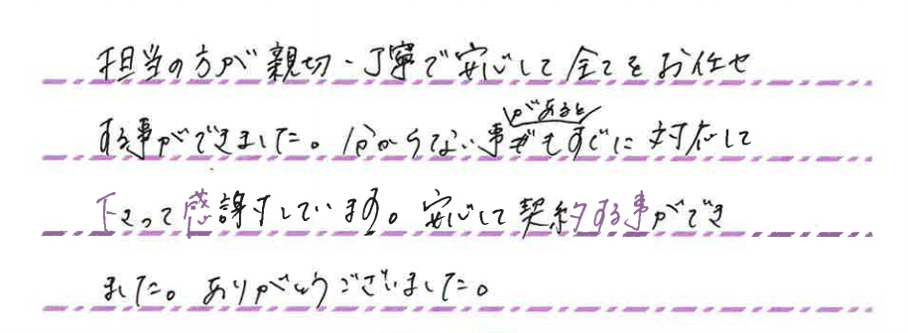 担当の方が親切・丁寧で安心して全てをお任せ
する事ができました。分からない事があるともすぐに対応して
下さって感謝しています。安心して契約する事ができ
ました。ありがとうございました。